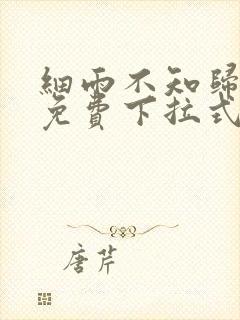 細雨不知歸
免費下拉式
唐芹